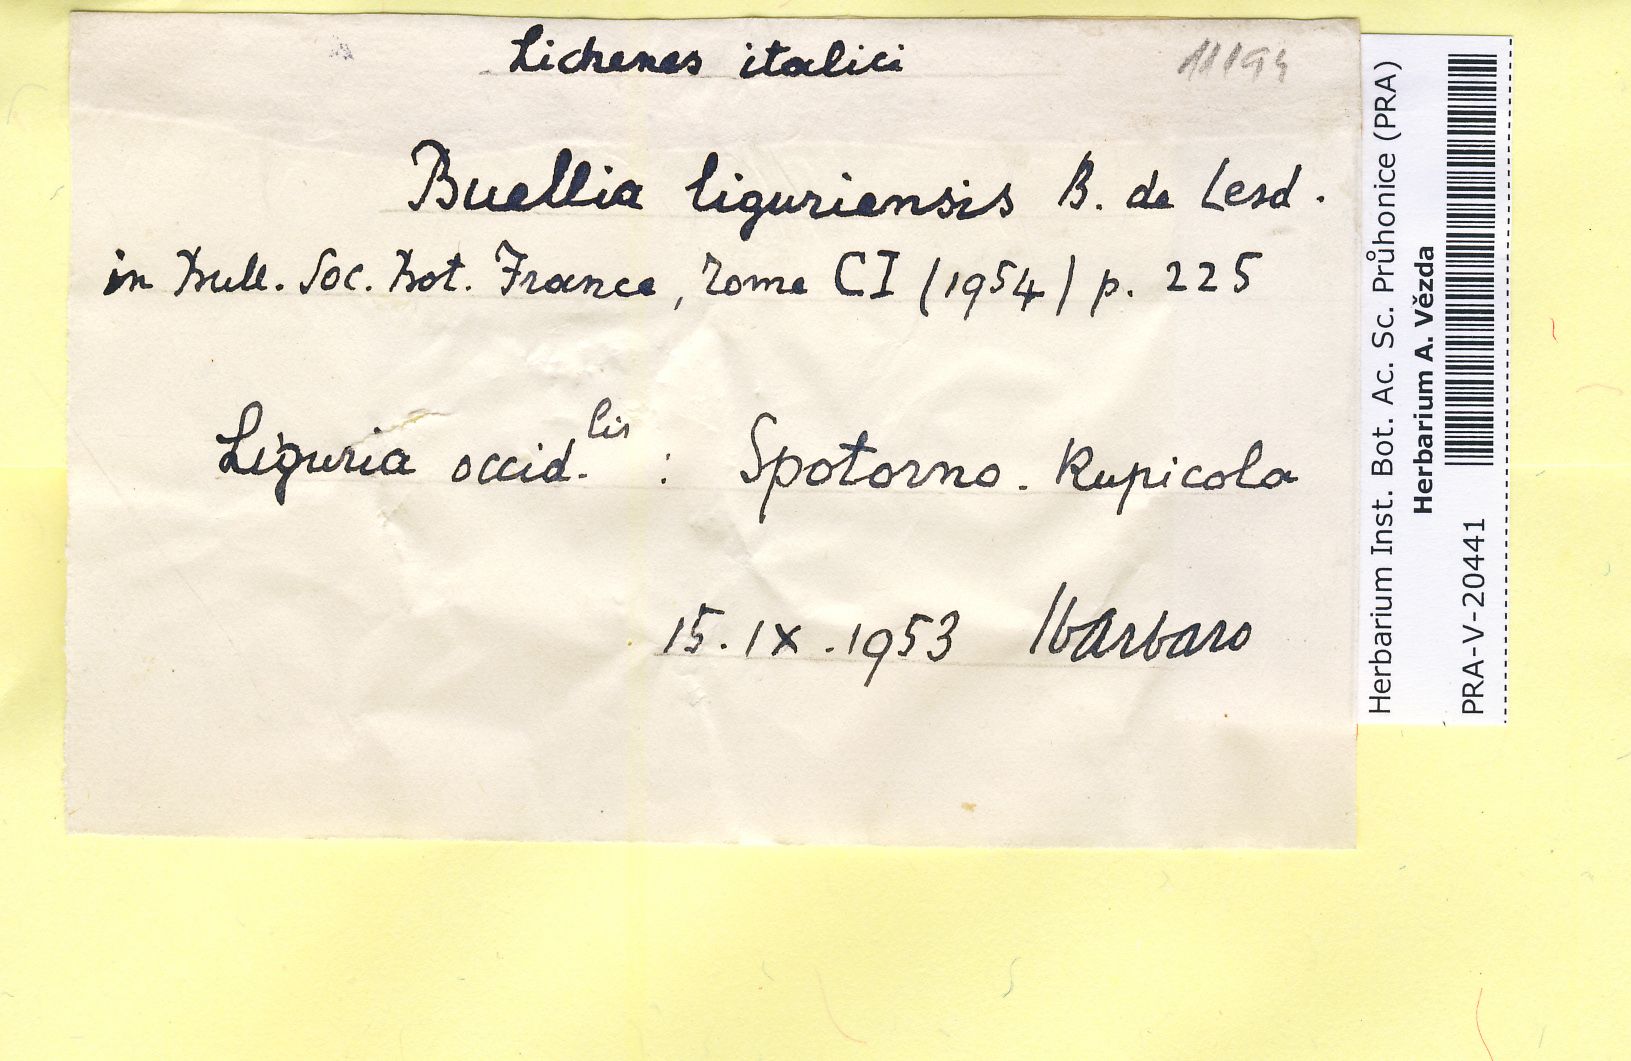 Lichenes italici
11194
Buellia liguriensis B. de Lesd.
in Bull. Soc. Bot. France, Tome CI (1954) p. 225
Liguria occid.lis : Spotorno. Rupicola
15.IX.1953 Sbarbaro
Herbarium Inst. Bot. Ac. Sc. Průhonice (PRA)
Herbarium A. Vězda
PRA-V-20441